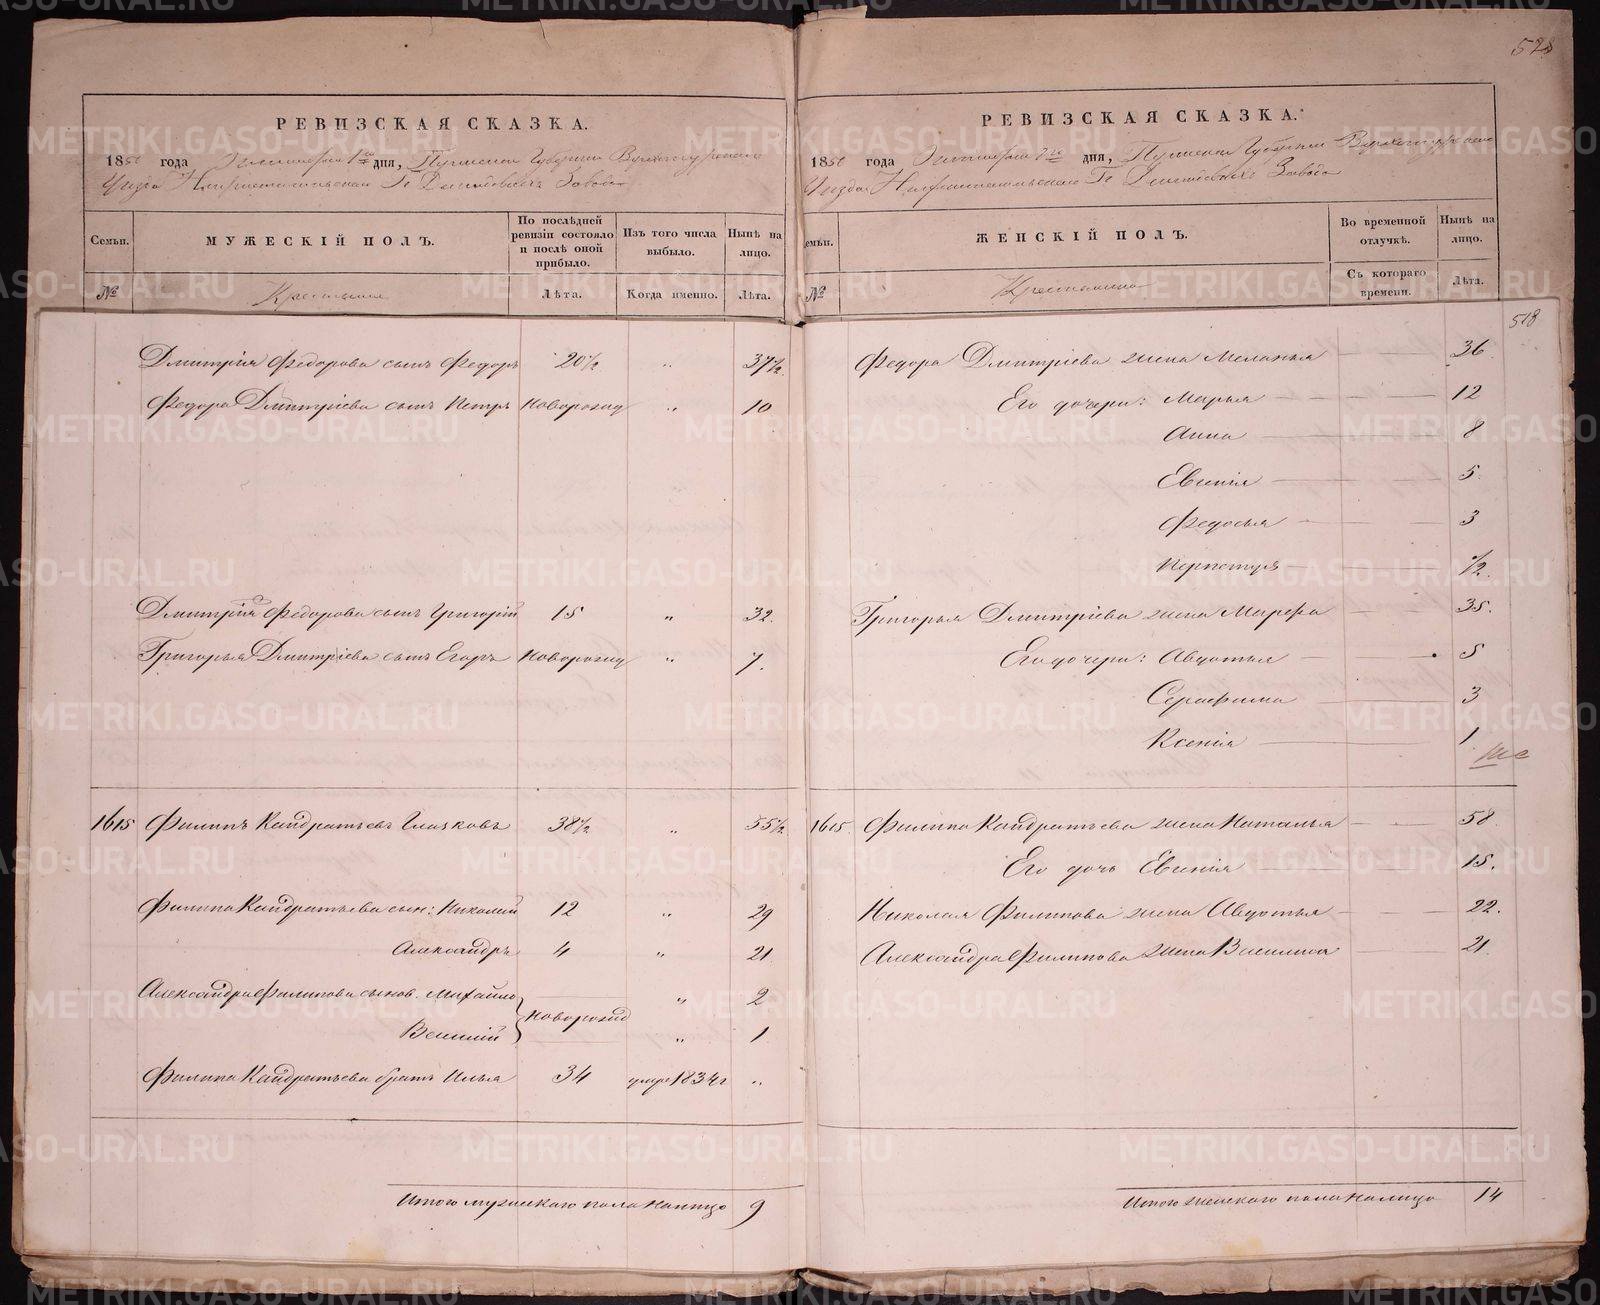 528
РЕВИЗСКАЯ СКАЗКА.
1850 года дня, Пермской Губернии Верхотурскаго
Уезда Нижнетагильскаго Гг Демидовыхъ Завода
Семьи. МУЖЕСКІЙ ПОЛЪ. По послѣдней ревизіи состояло и послѣ оной прибыло. Изъ того числа выбыло. Нынѣ на лицо.
№ Крестьяне Лѣта. Когда именно. Лѣта.
Дмитрія Федорова сынъ Федоръ 20½ " 37½
Федора Дмитріева сынъ Петръ Новорожд " 10
Дмитрія Федорова сынъ Григорій 15 " 32.
Григорья Дмитріева сынъ Егоръ Новорожд " 7.
1615 Филипъ Кандратьевъ Глазковъ 38½ " 55½
Филипа Кандратьева сын: Николай 12 " 29
Александръ 4 " 21
Александра Филипова сынов. Михайло " 2
Новорожд
Василій " 1
Филипа Кандратьева братъ Илья 34 умре 1834г "
Итого мужескаго пола налицо 9
РЕВИЗСКАЯ СКАЗКА.
1850 года дня, Пермской Губерніи Верхотурскаго
Уезда Нижнетагильскаго Гг Демидовыхъ Завода
Семьи. ЖЕНСКІЙ ПОЛЪ. Во временной отлучкѣ. Нынѣ на лицо.
№ Крестьянино Съ котораго времени. Лѣта.
518
Федора Дмитріева жена Меланья 36
Его дочери: Марья 12
Анна 8
Евгенія 5
Федосья 3
Перпетуя ½.
Григорья Дмитріева жена Марфа 35.
Его дочери: Авдотья 5
Серафима 3
Ксенія 1
1615. Филипа Кандратьева жена Наталья 58
Его дочь Евгенія 15.
Николая Филипова жена Авдотья 22.
Александра Филипова жена Василиса 21
Итого женскаго пола налицо 14
METRIKI.GASO-URAL.RU